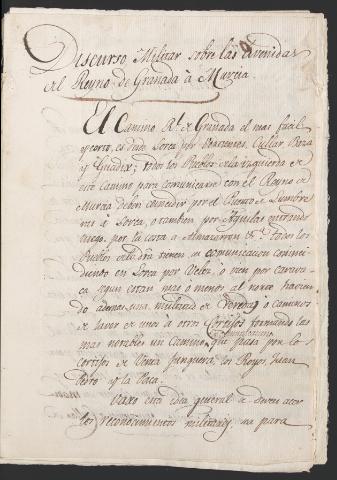 Discurso Militar sobre las Avenidas
del Reyno de Granada à Murcia.
El Camino Rl. de Granada el mas facil
y corto, es desde Lorca por Vertientes, Cullar, Baza
y Guadix; todos los Pueblos de la izquierda de
este Camino para comunicarse con el Reyno de
Murcia deben descender por el Puerto de Lumbre
ras à Lorca, o tambien por Aguilas entrando
luego por la costa a Almazarron &a. todos los
Pueblos de la dra tienen su comunicacion
en Lorca por Velez, o bien por Carava
ca segun estan mas o menos al norte havien
do ademas una multitud de Veredas o caminos
de unos à otros Cortijos formando las
mas un Camino que pasa por los
Cortijos de Venta Junquera, los Royos, Juan
y la Vaca.
Vaxo esta idea general se deven
los reconocimientos militares, ya para